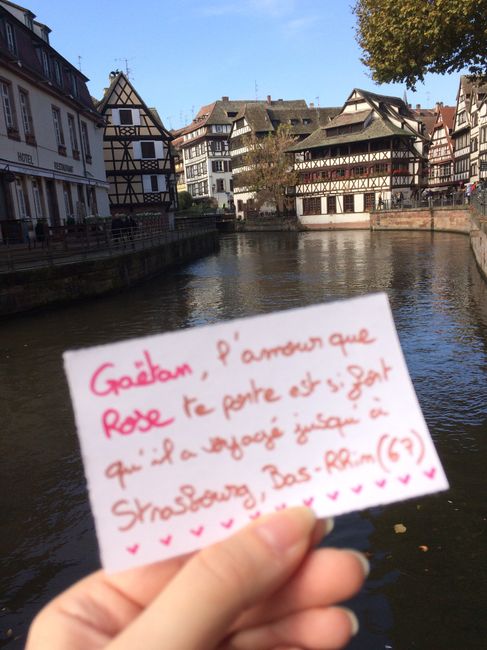 HOTEL RESTAURANT
Gaëtan, l'amour que
Rose te porte est si fort
qu'il a voyagé jusqu'à
Strasbourg, Bas-Rhin (67)